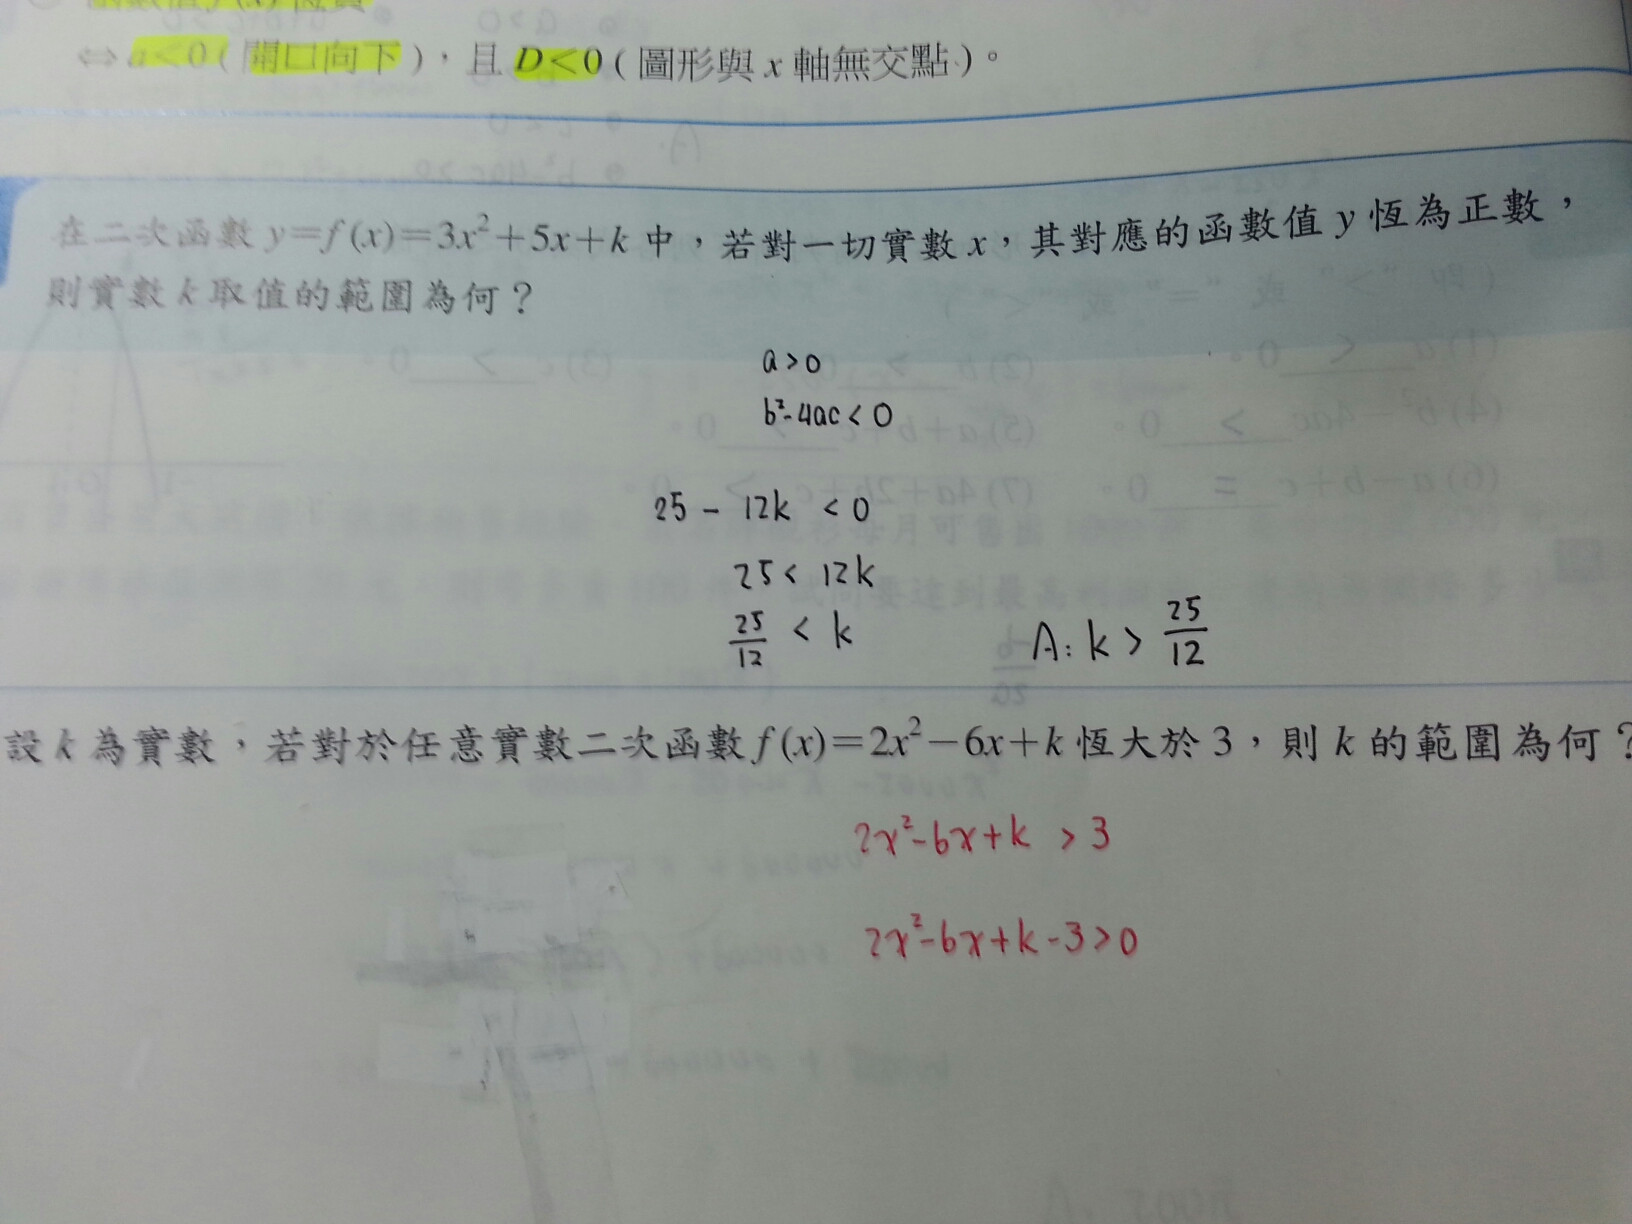 ⇔a<0(開口向下),且D<0(圖形與x軸無交點)。
在二次函數y=f(x)=3x²+5x+k中,若對一切實數x,其對應的函數值y恆為正數,
則實數k取值的範圍為何?
a>0
b²-4ac<0
25-12k<0
25<12k
25/12<k
A:k>25/12
設k為實數,若對於任意實數二次函數f(x)=2x²-6x+k恆大於3,則k的範圍為何?
2x²-6x+k>3
2x²-6x+k-3>0